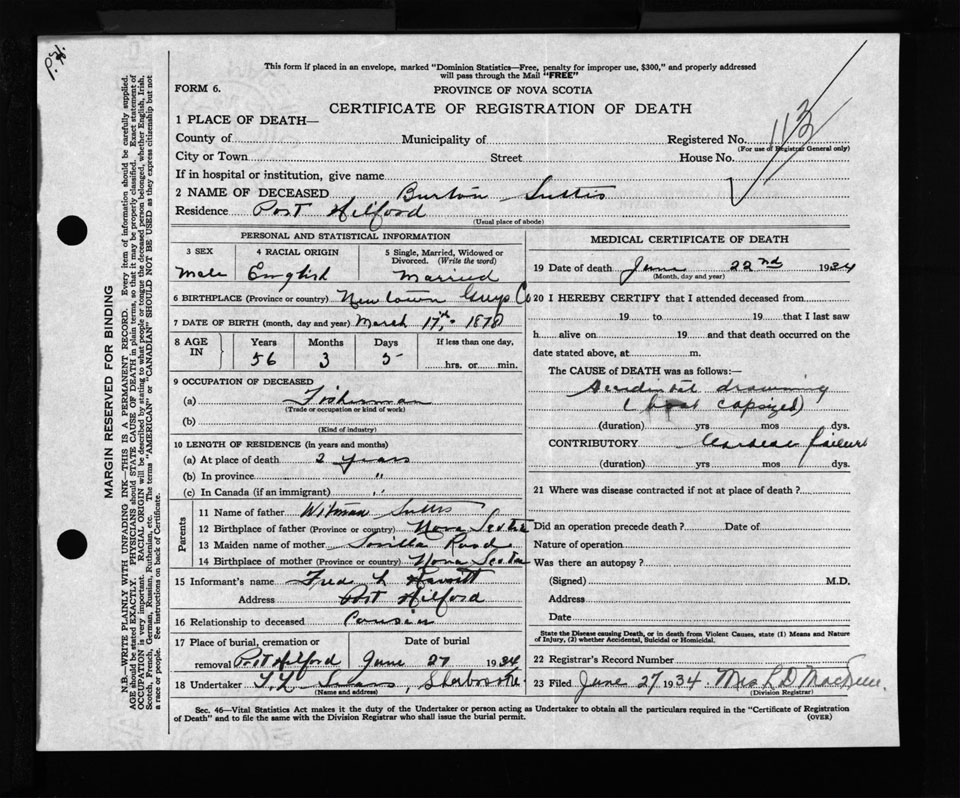 P.H.
This form if placed in an envelope, marked "Dominion Statistics—Free, penalty for improper use, $300," and properly addressed
will pass through the Mail "FREE"
FORM 6.
PROVINCE OF NOVA SCOTIA
CERTIFICATE OF REGISTRATION OF DEATH
1 PLACE OF DEATH—
County of Municipality of Registered No. 113
(For use of Registrar General only)
City or Town Street House No.
If in hospital or institution, give name
2 NAME OF DECEASED Burton Suttis
Residence Port Hilford
(Usual place of abode)
PERSONAL AND STATISTICAL INFORMATION
3 SEX 4 RACIAL ORIGIN 5 Single, Married, Widowed or
Divorced. (Write the word)
Male English Married
6 BIRTHPLACE (Province or country) Newtown Guys Co
7 DATE OF BIRTH (month, day and year) March 17th, 1878
8 AGE IN Years Months Days If less than one day,
56 3 5 hrs. or min.
9 OCCUPATION OF DECEASED
(a) Fisherman
(Trade or occupation or kind of work)
(b)
(Kind of industry)
10 LENGTH OF RESIDENCE (in years and months)
(a) At place of death 2 years
(b) In province "
(c) In Canada (if an immigrant) "
Parents
11 Name of father Suttis
12 Birthplace of father (Province or country) Nova Scotia
13 Maiden name of mother
14 Birthplace of mother (Province or country) Nova Scotia
15 Informant's name Fred L
Address Port Hilford
16 Relationship to deceased Cousin
17 Place of burial, cremation or Date of burial
removal Port Hilford June 27 1934
18 Undertaker Sherbrooke
(Name and address)
MEDICAL CERTIFICATE OF DEATH
19 Date of death June 22nd 1934
(Month, day and year)
20 I HEREBY CERTIFY that I attended deceased from
19 to 19 that I last saw
h alive on 19 and that death occurred on the
date stated above, at m.
The CAUSE of DEATH was as follows:—
Accidental drowning
(boat capsized)
(duration) yrs mos dys.
CONTRIBUTORY Cardiac failure
(duration) yrs mos dys.
21 Where was disease contracted if not at place of death?
Did an operation precede death? Date of
Nature of operation
Was there an autopsy?
(Signed) M.D.
Address
Date
State the Disease causing Death, or in death from Violent Causes, state (1) Means and Nature
of Injury, (2) whether Accidental, Suicidal or Homicidal.
22 Registrar's Record Number
23 Filed June 27 1934. Mrs
(Division Registrar)
Sec. 46—Vital Statistics Act makes it the duty of the Undertaker or person acting as Undertaker to obtain all the particulars required in the "Certificate of Registration
of Death" and to file the same with the Division Registrar who shall issue the burial permit. (OVER)
MARGIN RESERVED FOR BINDING
N.B.—WRITE PLAINLY WITH UNFADING INK—THIS IS A PERMANENT RECORD. Every item of information should be carefully supplied.
AGE should be stated EXACTLY. PHYSICIANS should STATE CAUSE OF DEATH in plain terms, so that it may be properly classified. Exact statement of
OCCUPATION is very important. RACIAL ORIGIN will be described by stating to what people or tongue the deceased person belonged, whether English, Irish,
Scotch, French, German, Russian, Ruthenian, etc. The terms "AMERICAN" or "CANADIAN" SHOULD NOT BE USED as they express citizenship but not
a race or people. See instructions on back of Certificate.